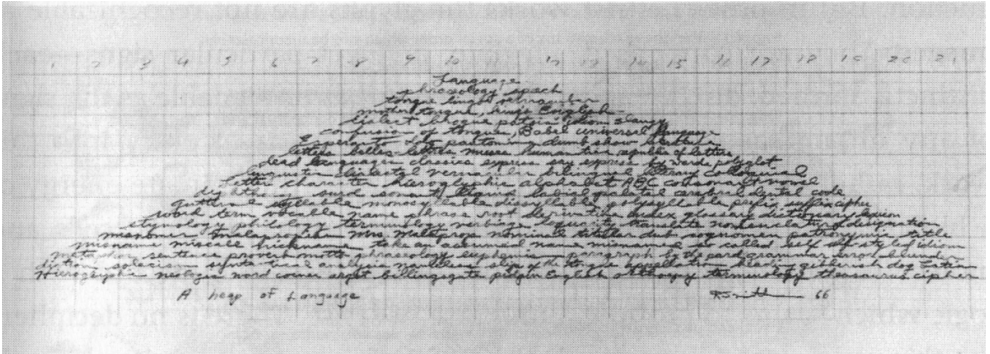 1 2 3 4 5 6 7 8 9 10 11 12 13 14 15 16 17 18 19 20 21
Language
phraseology speech
tongue lingo vernacular
mother tongue, King's English
dialect brogue patois idiom slang
confusion of tongues, Babel universal language
Esperanto Ido pantomime dumb show literature
letters belles lettres muses humanities republic of letters
dead languages classics express say express by words polyglot
linguistic dialectal vernacular bilingual literary colloquial
letter character hieroglyphic alphabet ABC consonant vowel
diphthong surd sonant liquid labial palatal cerebral dental code
guttural syllable monosyllable dissyllable polysyllable prefix suffix cipher
word term vocable name phrase root derivative index glossary dictionary lexicon
etymology philology terminology verbatim translate nomenclature designation
nominal titular cognomen patronymic title
misname miscall nickname take an assumed name misnamed so called self styled idiom
metaphor sentence proverb motto phraseology euphemism paragraph grammar error blunder
slip of the tongue
Hieroglyphic neologist word coiner argot billingsgate pidgin English orthoepy terminology thesaurus cipher
A heap of Language
RSmith 66